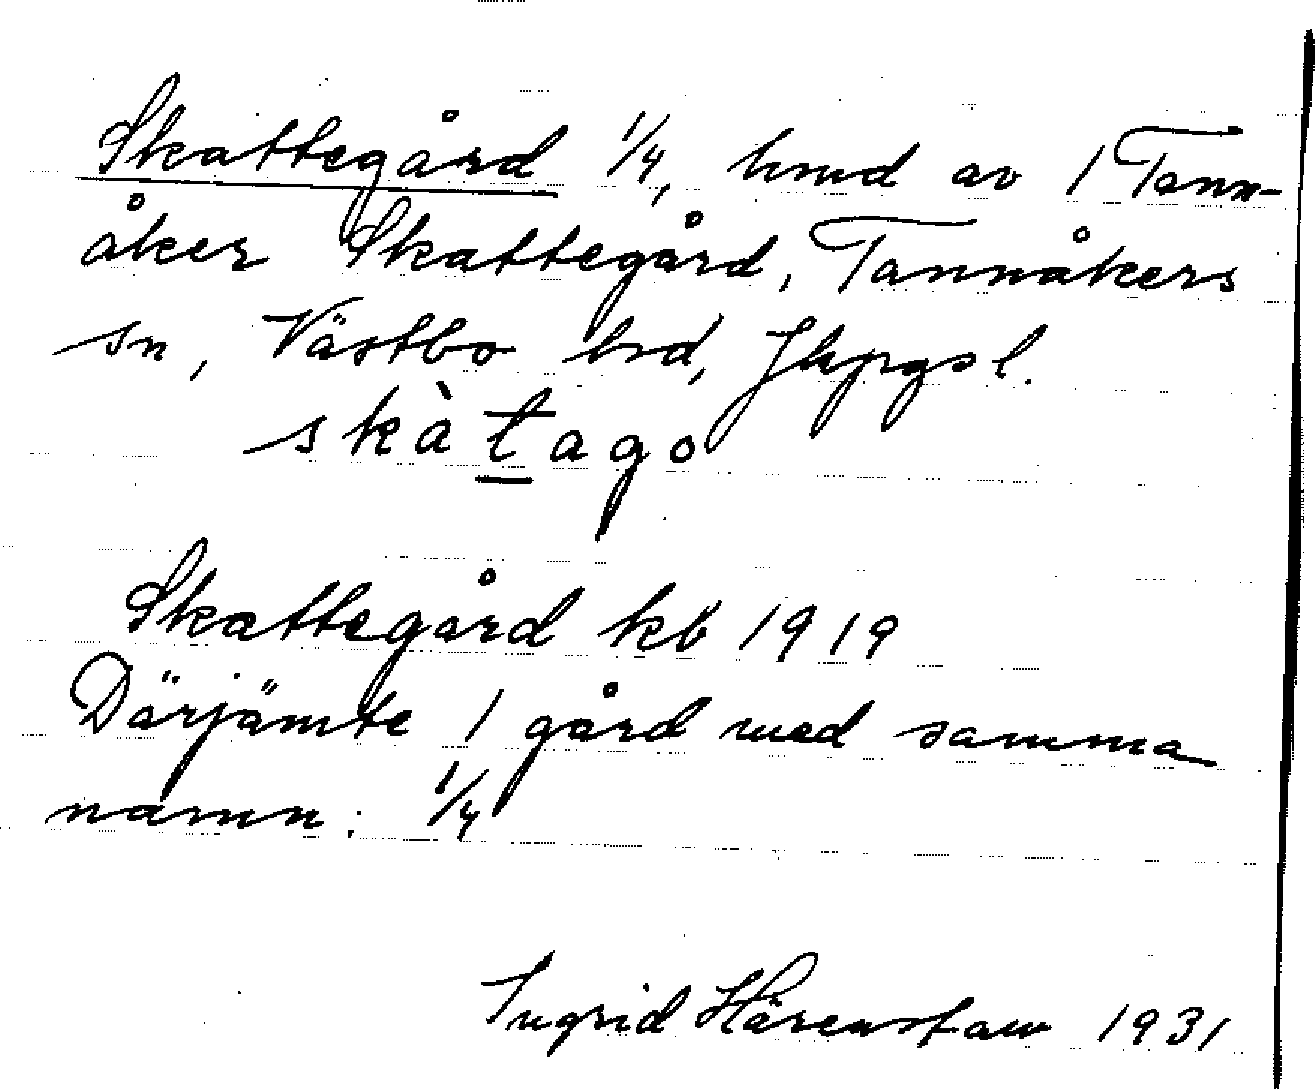 Skattegård 1/4, hmd av 1 Tann-
åker Skattegård, Tannåkers
sn, Västbo hd, Jkpgs l.
skàtago
Skattegård kb 1919
Därjämte 1 gård med samma
namn: 1/4
Ingrid Härenstam 1931